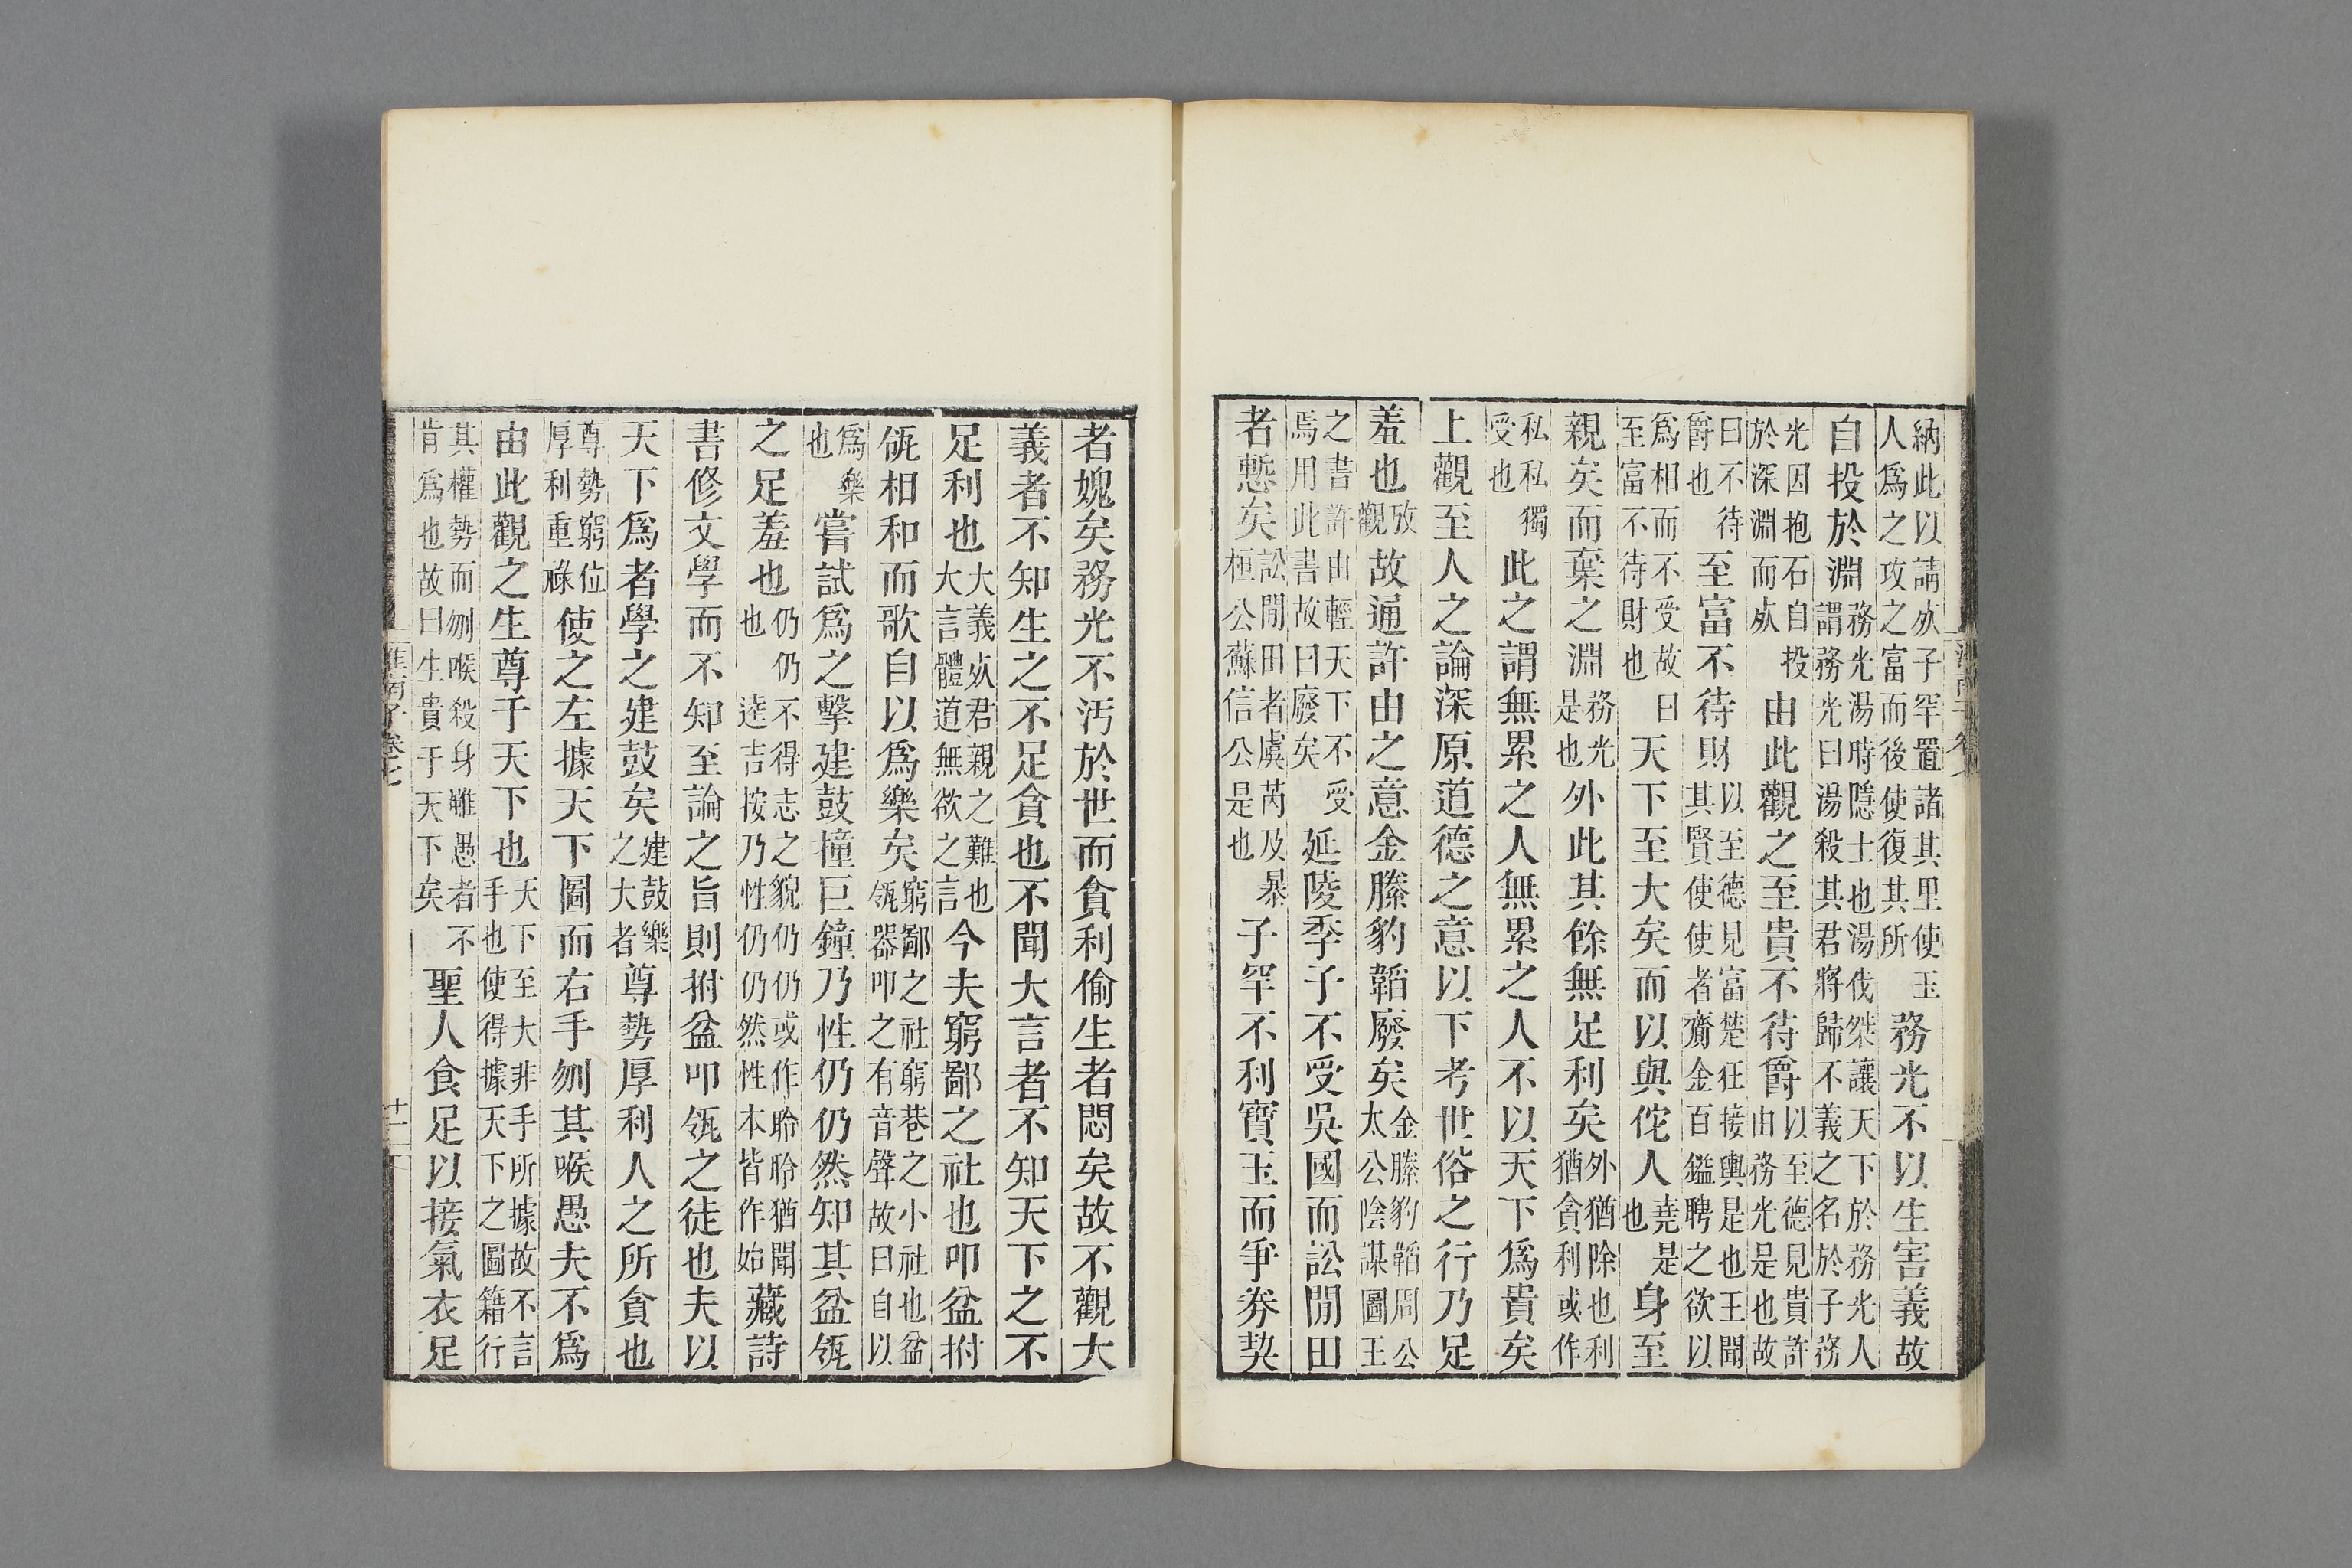 納此以請㱙子罕置諸其里使玉人爲之攻之富而後使復其所務光不以生害義故
自投於淵務光湯時隱士也湯伐桀讓天下於務光人謂務光曰湯殺其君將歸不義之名於子務
光因抱石自投於深淵而㱙由此觀之至貴不待爵以至德見貴許由務光是也故
曰不待爵也至富不待財以至德見富楚狂接輿是也王聞其賢使使者齎金百鎰聘之欲以
爲相而不受故曰至富不待財也天下至大矣而以與佗人堯是也身至
親矣而棄之淵務光是也外此其餘無足利矣外猶除也利猶貪利或作
私私獨受也此之謂無累之人無累之人不以天下爲貴矣
上觀至人之論深原道德之意以下考世俗之行乃足
羞也攷觀故通許由之意金縢豹韜廢矣金縢豹韜周公太公陰謀圖王
之書許由輕天下不受焉用此書故曰廢矣延陵季子不受吳國而訟閒田
者慙矣訟閒田者虞芮及暴桓公蘇信公是也子罕不利寶玉而爭券契
者媿矣務光不汚於世而貪利偷生者悶矣故不觀大
義者不知生之不足貪也不聞大言者不知天下之不
足利也大義㱙君親之難也大言體道無欲之言今夫窮鄙之社也叩盆拊
瓴相和而歌自以爲樂矣窮鄙之社窮巷之小社也盆瓴器叩之有音聲故曰自以
爲樂也嘗試爲之擊建鼓撞巨鐘乃性仍仍然知其盆瓴
之足羞也仍仍不得志之貌仍仍或作聆聆猶聞也逵吉按乃性仍仍然性本皆作始藏詩
書修文學而不知至論之旨則拊盆叩瓴之徒也夫以
天下爲者學之建鼓矣建鼓樂之大者尊勢厚利人之所貪也
尊勢窮位厚利重祿使之左據天下圖而右手刎其喉愚夫不爲
由此觀之生尊于天下也天下至大非手所據故不言手也使得據天下之圖籍行
其權勢而刎喉殺身雖愚者不肯爲也故曰生貴于天下矣聖人食足以接氣衣足
淮南子卷七
十一